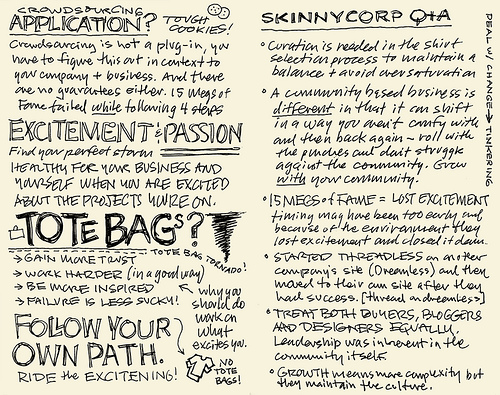 CROWDSOURCING
APPLICATION? TOUGH
COOKIES!
Crowdsourcing is not a plug-in, you
have to figure this out in context to
your company + business. And there
are no guarantees either. 15 Megs of
Fame failed while following 4 steps
EXCITEMENT & PASSION
Find your perfect storm
HEALTHY FOR YOUR BUSINESS AND
YOURSELF WHEN YOU ARE EXCITED
ABOUT THE PROJECTS YOU'RE ON.
TOTE BAGS?
TOTE BAG TORNADO!
→ GAIN MORE TRUST
→ WORK HARDER (in a good way)
→ BE MORE INSPIRED
→ FAILURE IS LESS SUCKY!
why you
should do
work on
what
excites you.
FOLLOW YOUR
OWN PATH.
RIDE the EXCITENING!
NO
TOTE
BAGS!
SKINNYCORP Q+A
• Curation is needed in the shirt
selection process to maintain a
balance + avoid over saturation
• A community based business is
different in that it can shift
in a way you aren't comfy with
and then back again - roll with
the punches and don't struggle
against the community. Grow
with your community.
• 15 MEGS of FAME = LOST EXCITEMENT
timing may have been too early and
because of the environment they
lost excitement and closed it down.
• STARTED THREADLESS on another
company's site (Dreamless) and then
moved to their own site after they
had success. [thread on dreamless]
• TREAT BOTH BUYERS, BLOGGERS
AND DESIGNERS EQUALLY.
Leadership was inherent in the
community itself.
• GROWTH means more complexity but
they maintain the culture.
DEAL W/ CHANGE → TINKERING